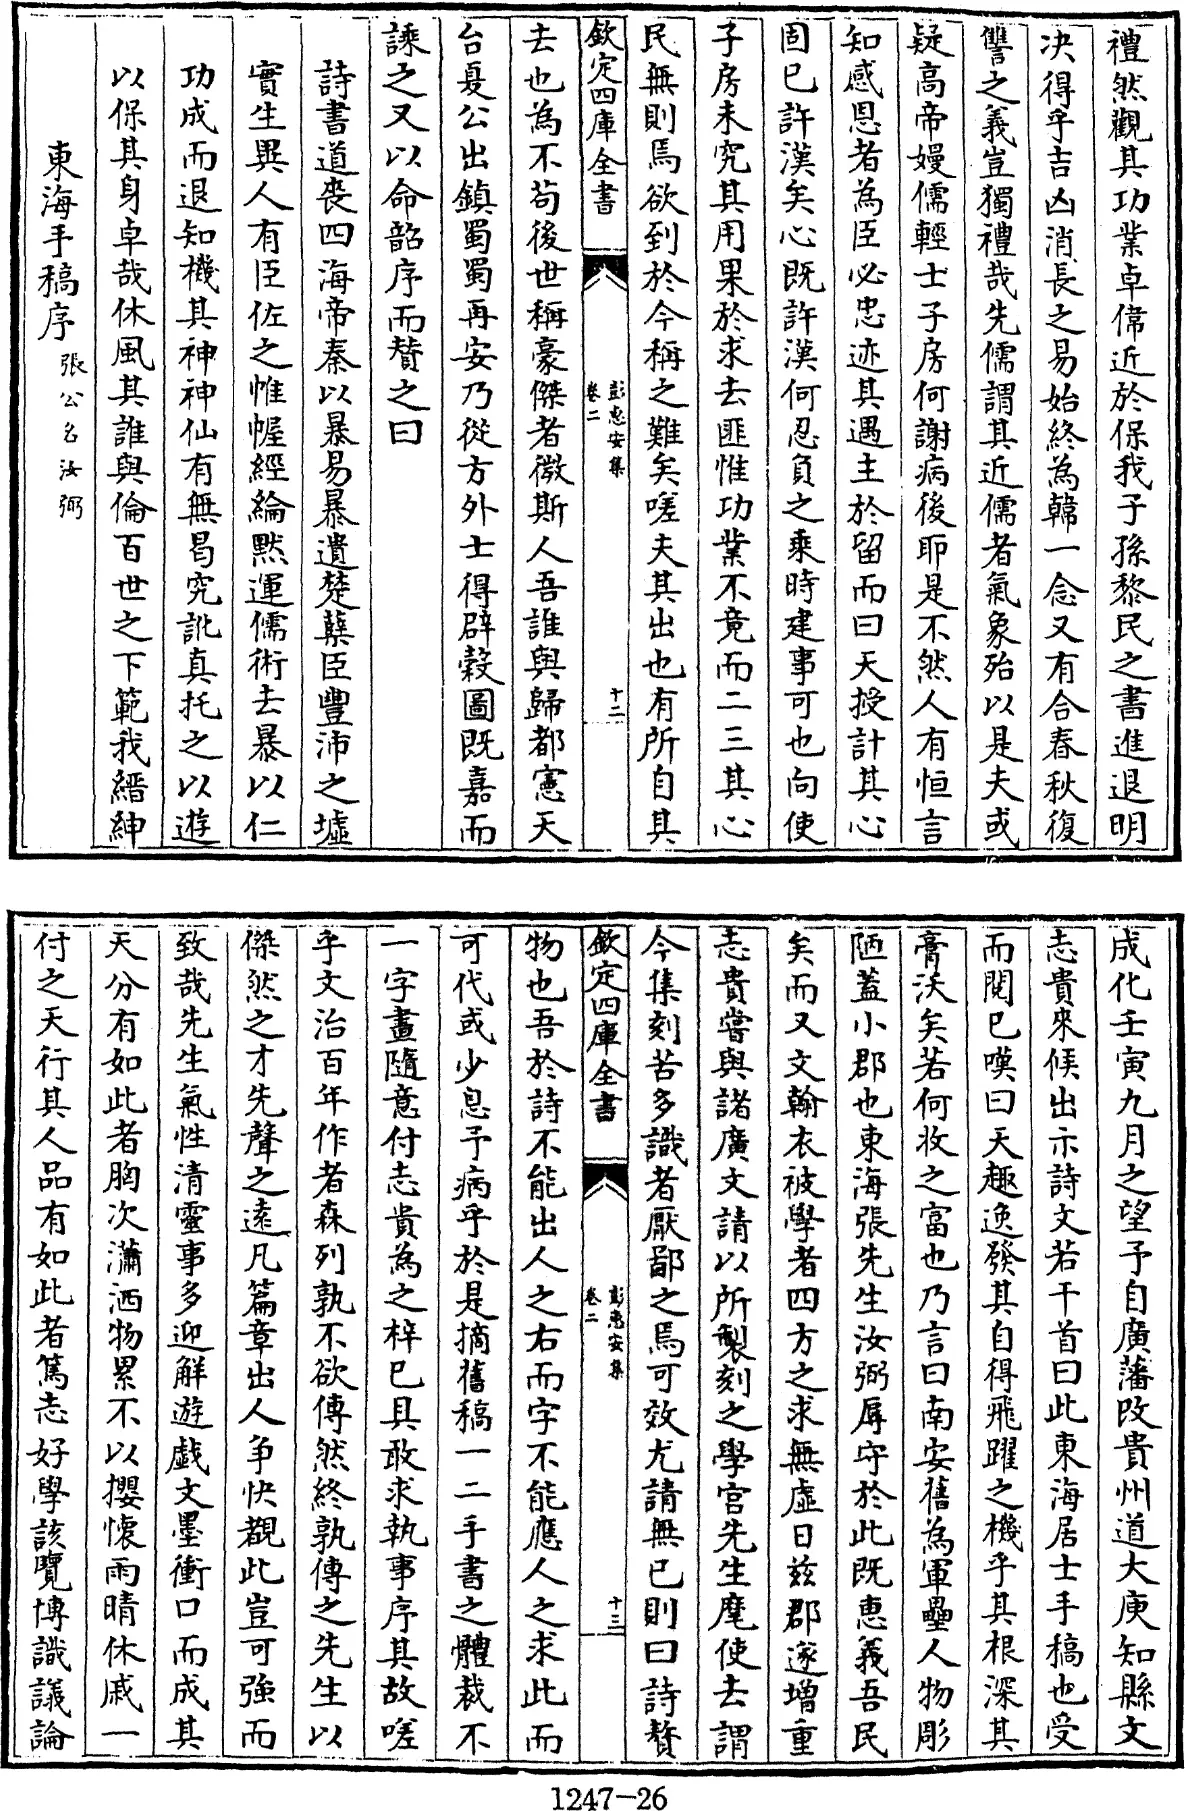 禮然觀其功業卓偉近於保我子孫黎民之書進退明
決得乎吉凶消長之易始終為韓一念又有合春秋復
讐之義豈獨禮哉先儒謂其近儒者氣象殆以是夫或
疑高帝嫚儒輕士子房何謝病後耶是不然人有恒言
知感恩者為臣必忠迹其遇主於留而曰天授計其心
固已許漢矣心既許漢何忍負之乘時建事可也向使
子房未究其用果於求去匪惟功業不竟而二三其心
民無則焉欲到於今稱之難矣嗟夫其出也有所自其
欽定四庫全書
彭惠安集
卷二
十二
去也為不苟後世稱豪傑者微斯人吾誰與歸都憲天
台夏公出鎮蜀蜀再安乃從方外士得辟穀圖既嘉而
諌之又以命韶序而贊之曰
詩書道喪四海帝秦以暴易暴遺楚蘖臣豐沛之墟
實生異人有臣佐之惟幄經綸默運儒術去暴以仁
功成而退知機其神神仙有無曷究訛真托之以遊
以保其身卓哉休風其誰與倫百世之下範我縉紳
東海手稿序
張公名汝弼
成化壬寅九月之望予自廣藩改貴州道大庾知縣文
志貴來候出示詩文若干首曰此東海居士手稿也受
而閱已嘆曰天趣逸發其自得飛躍之機乎其根深其
膏沃矣若何收之富也乃言曰南安舊為軍壘人物彫
陋蓋小郡也東海張先生汝弼辱守於此既惠義吾民
矣而又文翰衣被學者四方之求無虚日兹郡遂增重
志貴嘗與諸廣文請以所製刻之學宫先生麾使去謂
今集刻苦多識者厭鄙之焉可效尤請無已則曰詩贅
欽定四庫全書
彭惠安集
卷二
十三
物也吾於詩不能出人之右而字不能應人之求此而
可代或少息予病乎於是摘舊稿一二手書之體裁不
一字畫隨意付志貴為之梓已具敢求執事序其故嗟
乎文治百年作者森列孰不欲傳然終孰傳之先生以
傑然之才先聲之遠凡篇章出人争快覩此豈可強而
致哉先生氣性清靈事多迎解遊戯文墨衝口而成其
天分有如此者胸次瀟洒物累不以攖懷雨晴休戚一
付之天行其人品有如此者篤志好學該覽博識議論
1247-26